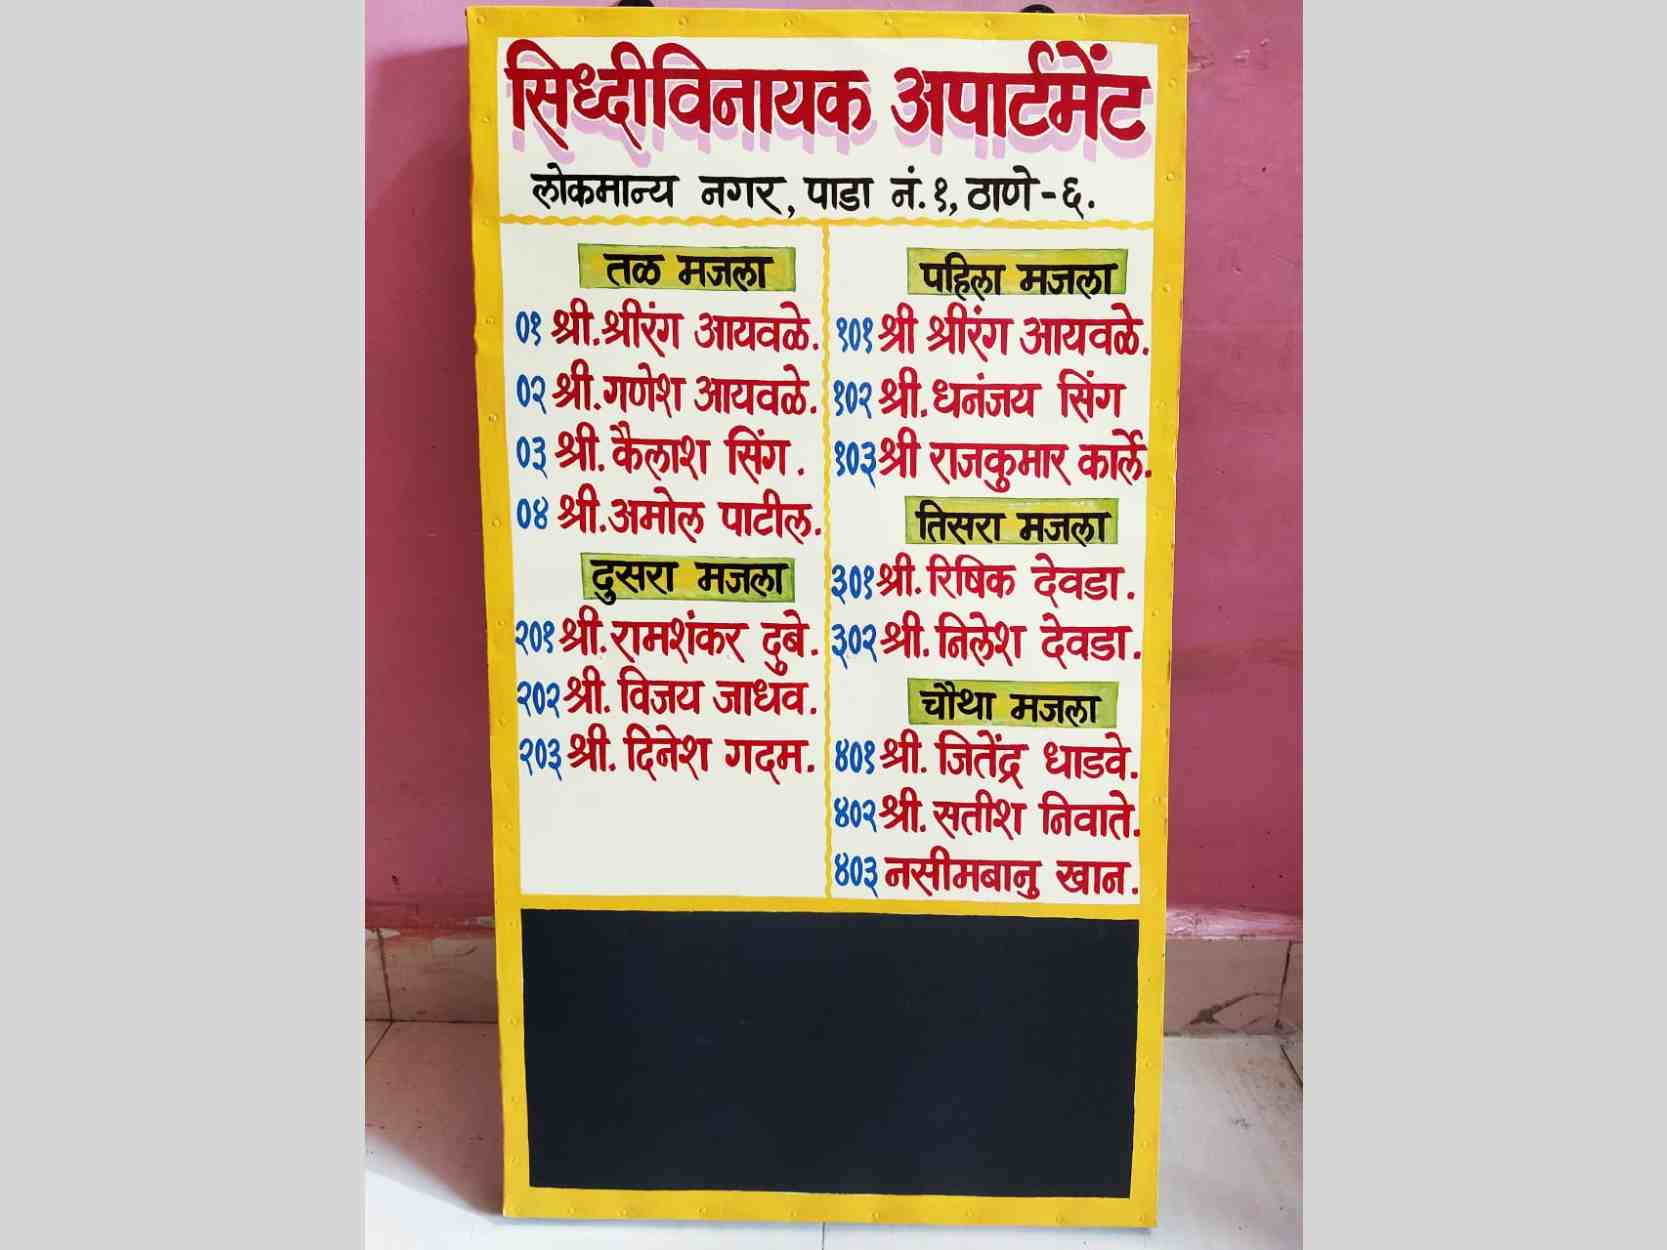 सिध्दीविनायक अपार्टमेंट
लोकमान्य नगर, पाडा नं. १, ठाणे - ६.
तळ मजला
०१ श्री. श्रीरंग आयवळे.
०२ श्री. गणेश आयवळे.
०३ श्री. कैलाश सिंग.
०४ श्री. अमोल पाटील.
दुसरा मजला
२०१ श्री. रामशंकर दुबे.
२०२ श्री. विजय जाधव.
२०३ श्री. दिनेश गदम.
पहिला मजला
१०१ श्री श्रीरंग आयवळे.
१०२ श्री. धनंजय सिंग
१०३ श्री राजकुमार कार्ले.
तिसरा मजला
३०१ श्री. रिषिक देवडा.
३०२ श्री. निलेश देवडा.
चौथा मजला
४०१ श्री. जितेंद्र धाडवे.
४०२ श्री. सतीश निवाते.
४०३ नसीमबानु खान.